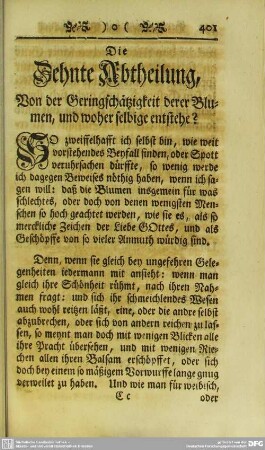 ) o (
401
Die
Zehnte Abtheilung,
Von der Geringschätzigkeit derer Blu-
men, und woher selbige entstehe?
SO zweiffelhafft ich selbst bin, wie weit
vorstehendes Beyfall finden, oder Spott
veruhrsachen dürffte, so wenig werde
ich dagegen Beweises nöthig haben, wenn ich sa-
gen will: daß die Blumen insgemein für was
schlechtes, oder doch von denen wenigsten Men-
schen so hoch geachtet werden, wie sie es, als so
merckliche Zeichen der Liebe GOttes, und als
Geschöpffe von so vieler Anmuth würdig sind.
Denn, wenn sie gleich bey ungefehren Gele-
genheiten iedermann mit ansieht: wenn man
gleich ihre Schönheit rühmt, nach ihren Nah-
men fragt: und sich ihr schmeichlendes Wesen
auch wohl reitzen läßt, eine, oder die andre selbst
abzubrechen, oder sich von andern reichen zu las-
sen, so meynt man doch mit wenigen Blicken alle
ihre Pracht übersehen, und mit wenigen Rie-
chen allen ihren Balsam erschöpffet, oder sich
doch bey einem so mäßigem Vorwurffe lange gnug
verweilet zu haben. Und wie man für weibisch,
C c
oder